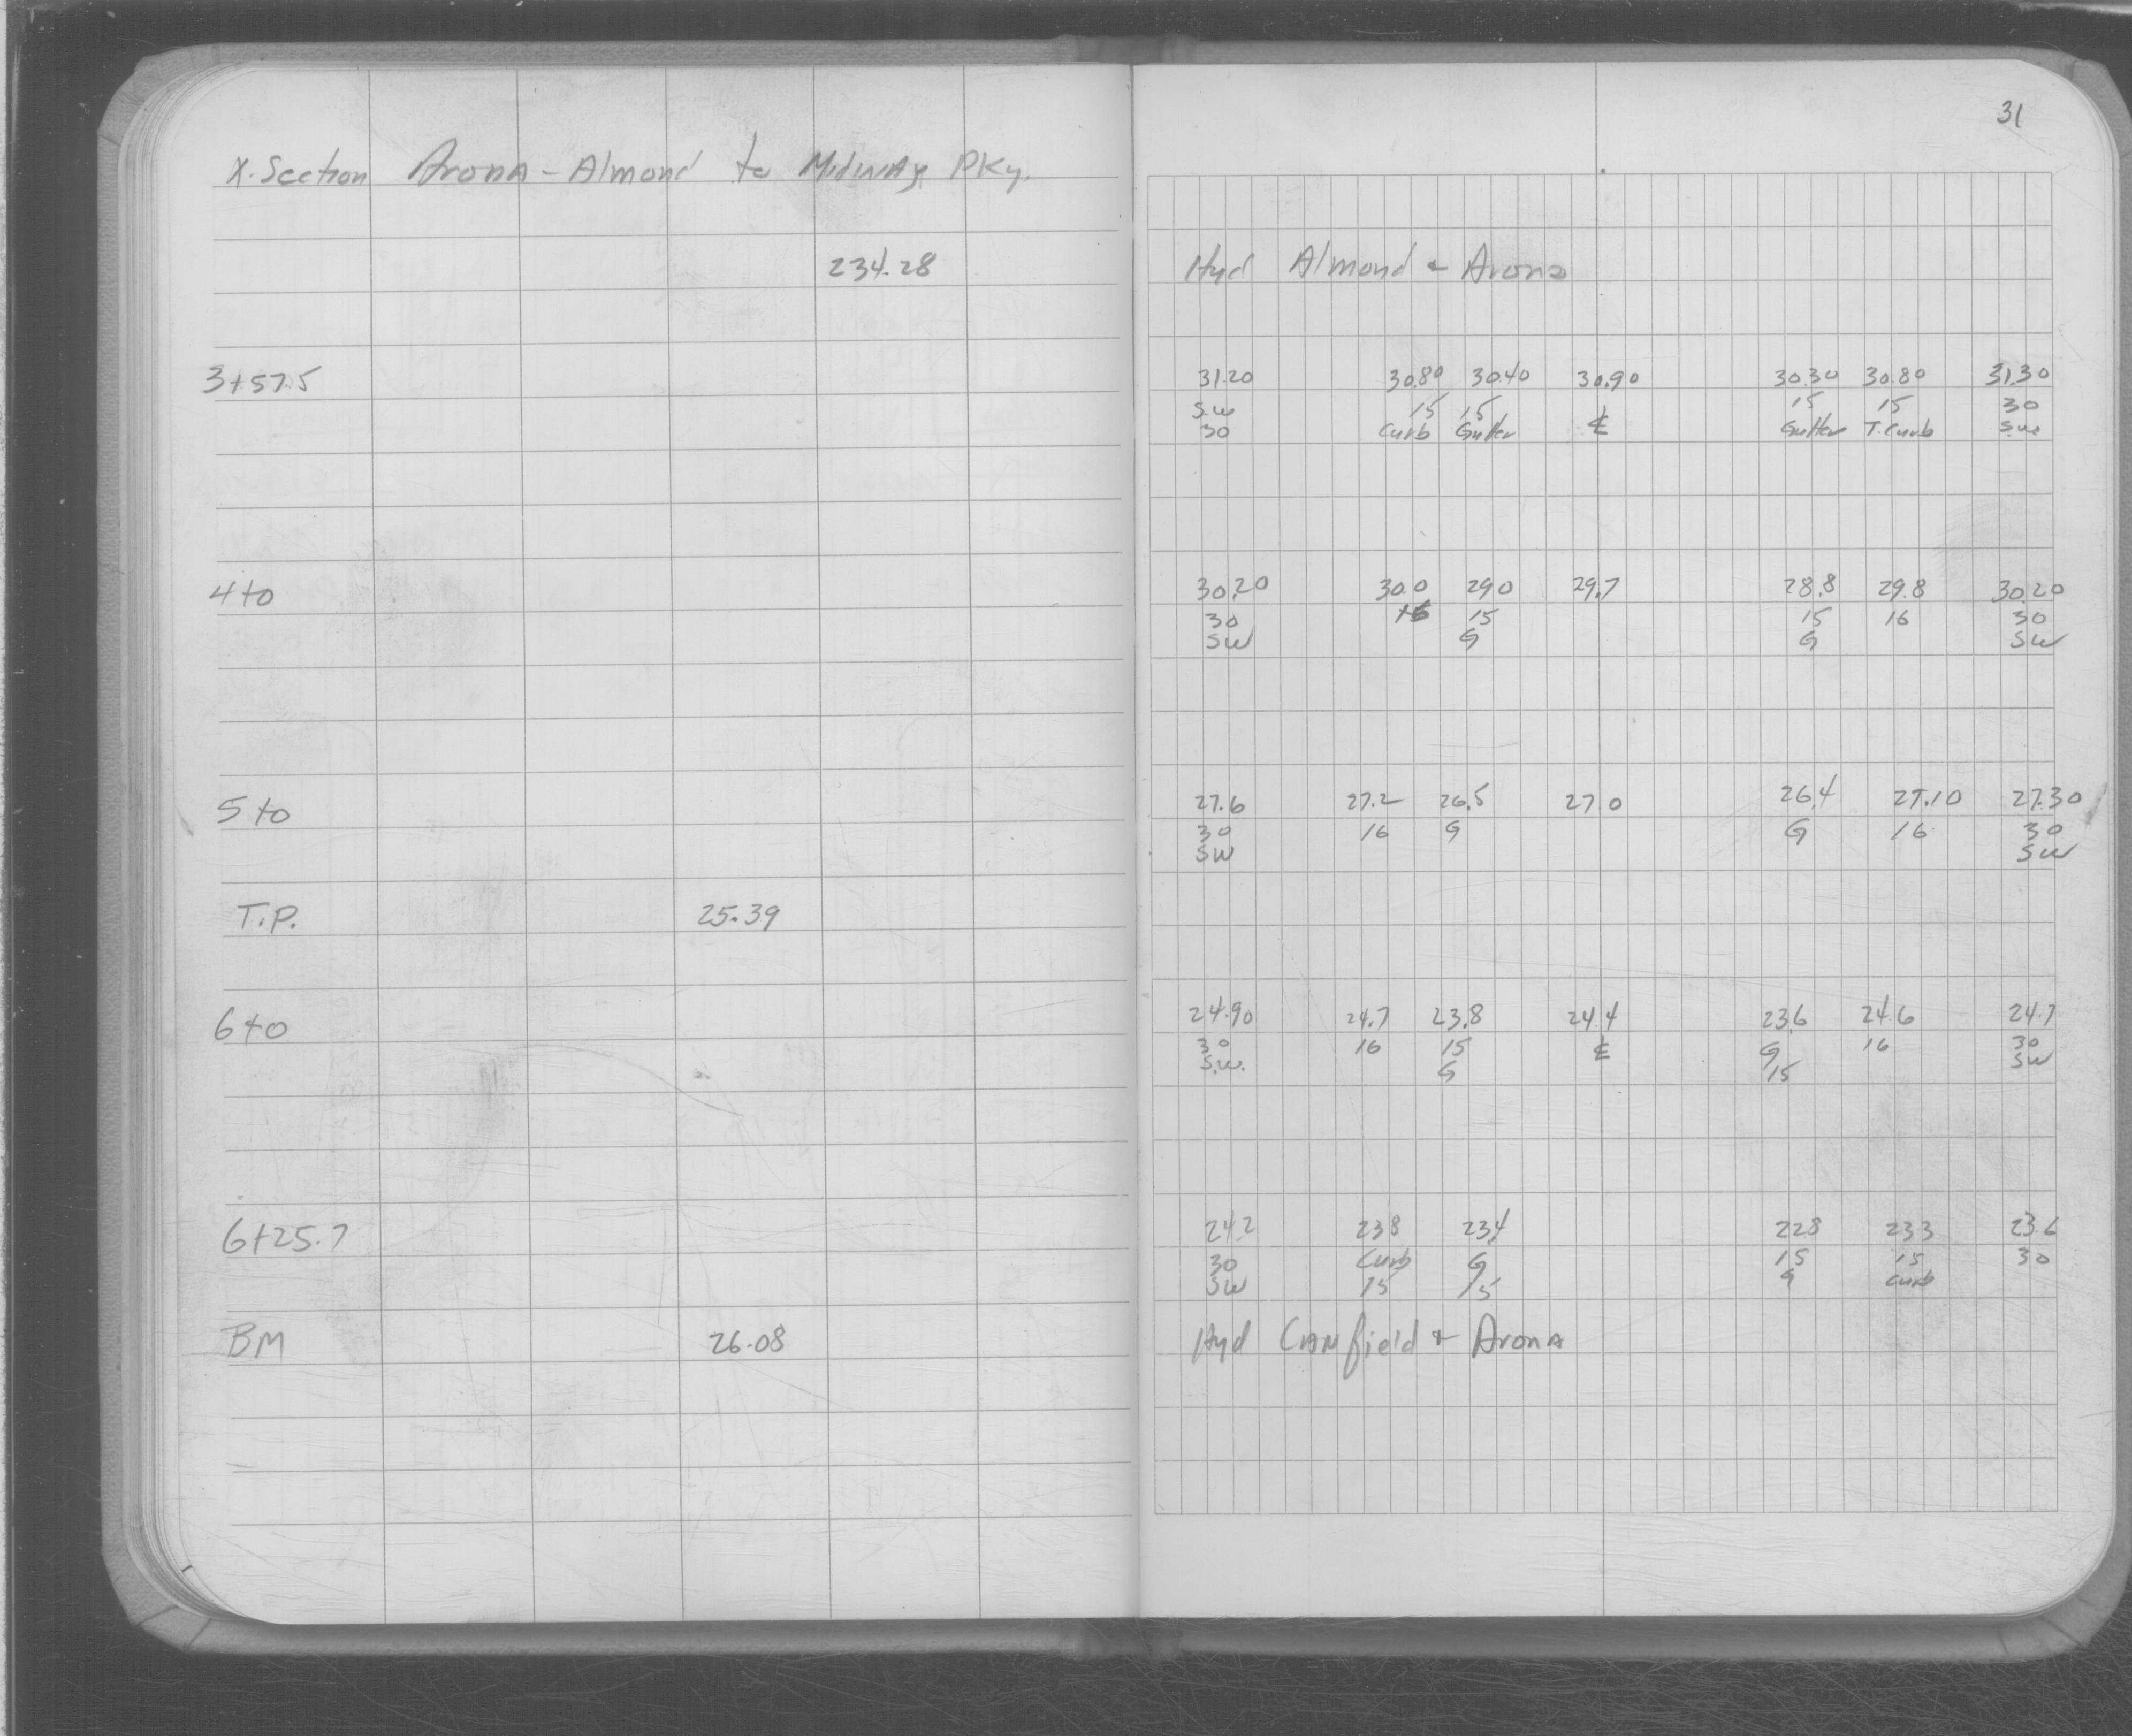 31
X-Section Arona - Almond to Midway PKy.
234.28 Hyd Almond + Arona
3+57.5 31.20 30.80 30.40 30.90 30.30 30.80 31.30
S.W 15 15 ℄ 15 15 30
30 Curb Gutter Gutter T.Curb S.W.
4+0 30.20 30.0 29.0 29.7 28.8 29.8 30.20
30 16 15 15 16 30
SW G G SW
5+0 27.6 27.2 26.5 27.0 26.4 27.10 27.30
30 16 G G 16 30
SW SW
T.P. 25.39
6+0 24.90 24.7 23.8 24.4 23.6 24.6 24.7
30 16 15 ℄ G 16 30
S.W. G 15 SW
6+25.7 24.2 23.8 23.4 22.8 23.3 23.6
30 Curb G 15 15 30
SW 15 15 G Curb
BM 26.08 Hyd Canfield + Arona